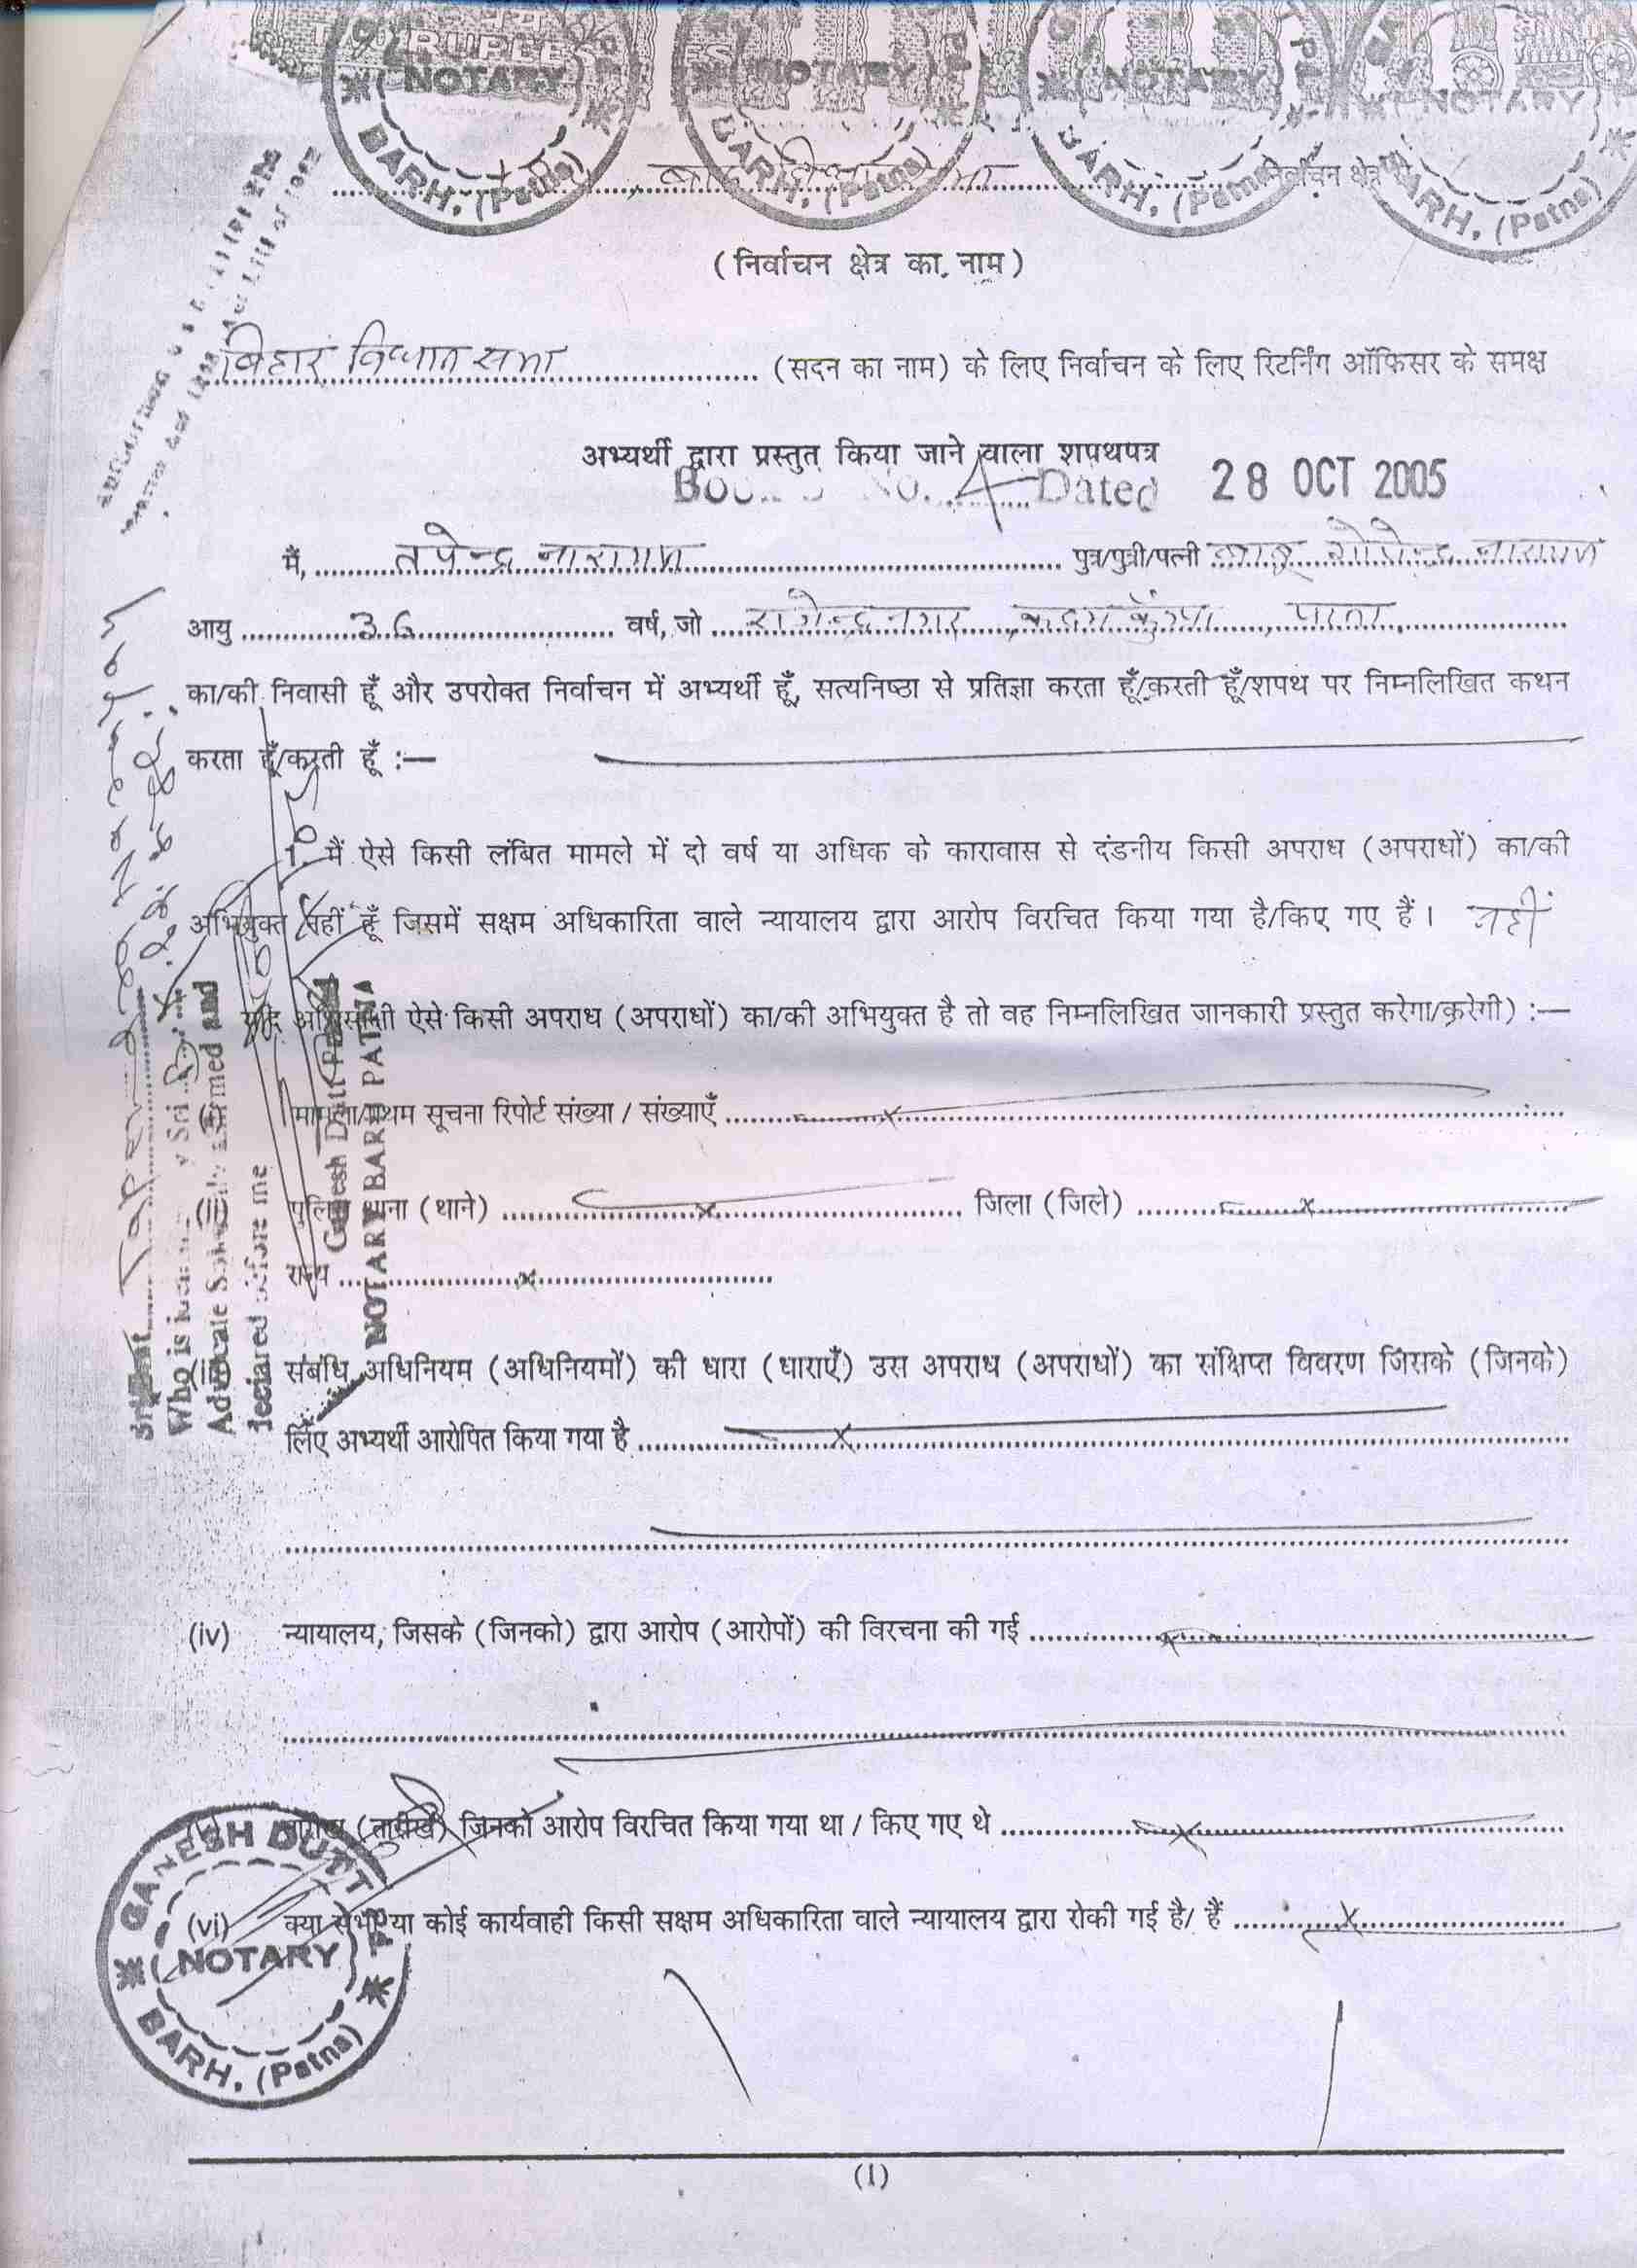 TWO RUPEES
NOTARY NOTARY NOTARY NOTARY
BARH. (Patna) BARH. (Patna) BARH. (Patna) BARH. (Patna)
निर्वाचन क्षेत्र
(निर्वाचन क्षेत्र का नाम)
बिहार विधान सभा (सदन का नाम) के लिए निर्वाचन के लिए रिटर्निंग ऑफिसर के समक्ष
अभ्यर्थी द्वारा प्रस्तुत किया जाने वाला शपथपत्र
No. 4 Dated 28 OCT 2005
मैं, तपेन्द्र नारायण पुत्र/पुत्री/पत्नी नारायण
आयु 36 वर्ष, जो राजेन्द्रनगर, कदमकुँआ, पटना,
का/की निवासी हूँ और उपरोक्त निर्वाचन में अभ्यर्थी हूँ, सत्यनिष्ठा से प्रतिज्ञा करता हूँ/करती हूँ/शपथ पर निम्नलिखित कथन
करता हूँ/करती हूँ :—
1. मैं ऐसे किसी लंबित मामले में दो वर्ष या अधिक के कारावास से दंडनीय किसी अपराध (अपराधों) का/की
अभियुक्त नहीं हूँ जिसमें सक्षम अधिकारिता वाले न्यायालय द्वारा आरोप विरचित किया गया है/किए गए हैं। नहीं
ऐसे किसी अपराध (अपराधों) का/की अभियुक्त है तो वह निम्नलिखित जानकारी प्रस्तुत करेगा/करेगी) :—
मामला/प्रथम सूचना रिपोर्ट संख्या / संख्याएँ x
थाना (थाने) x जिला (जिले) x
राज्य x
संबंधि अधिनियम (अधिनियमों) की धारा (धाराएँ) उस अपराध (अपराधों) का संक्षिप्त विवरण जिसके (जिनके)
लिए अभ्यर्थी आरोपित किया गया है x
(iv) न्यायालय, जिसके (जिनको) द्वारा आरोप (आरोपों) की विरचना की गई x
(तारीखें) जिनको आरोप विरचित किया गया था / किए गए थे x
(vi) क्या सभी या कोई कार्यवाही किसी सक्षम अधिकारिता वाले न्यायालय द्वारा रोकी गई है/ हैं x
GANESH DUTT
NOTARY
BARH. (Patna)
(1)
Who is
Advocate
declared before me
Ganesh Dutt
NOTARY BARH PATNA